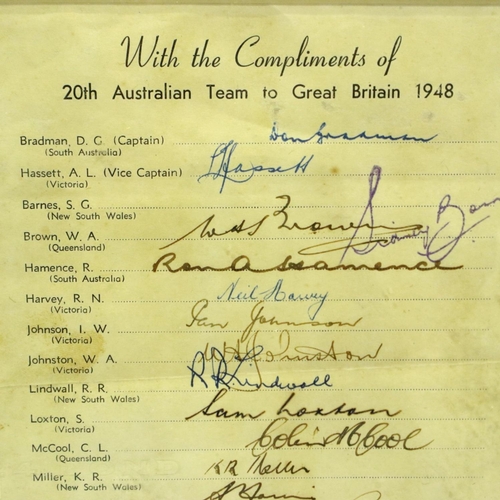 With the Compliments of
20th Australian Team to Great Britain 1948
Bradman, D. G. (Captain) Don Bradman
(South Australia)
Hassett, A. L. (Vice Captain) L Hassett
(Victoria)
Barnes, S. G. Sidney Barn
(New South Wales)
Brown, W. A. W A Brown
(Queensland)
Hamence, R. Ron A Hamence
(South Australia)
Harvey, R. N. Neil Harvey
(Victoria)
Johnson, I. W. Ian Johnson
(Victoria)
Johnston, W. A. W A Johnston
(Victoria)
Lindwall, R. R. R R Lindwall
(New South Wales)
Loxton, S. Sam Loxton
(Victoria)
McCool, C. L. Colin McCool
(Queensland)
Miller, K. R. K R Miller
(New South Wales)